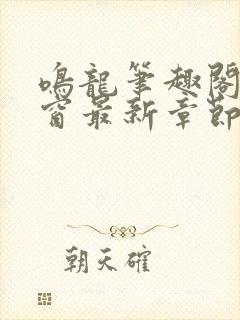 鳴龍筆趣閣
窗最新章節
朝天確